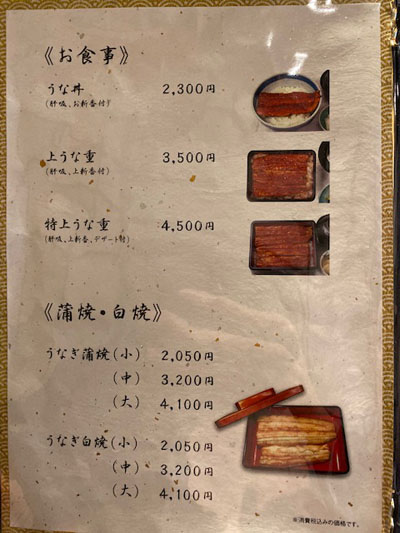 《お食事》
うな丼 2,300円
(肝吸、お新香付)
上うな重 3,500円
(肝吸、上新香付)
特上うな重 4,500円
(肝吸、上新香、デザート付)
《蒲焼・白焼》
うなぎ蒲焼(小) 2,050円
(中) 3,200円
(大) 4,100円
うなぎ白焼(小) 2,050円
(中) 3,200円
(大) 4,100円
※消費税込みの価格です。